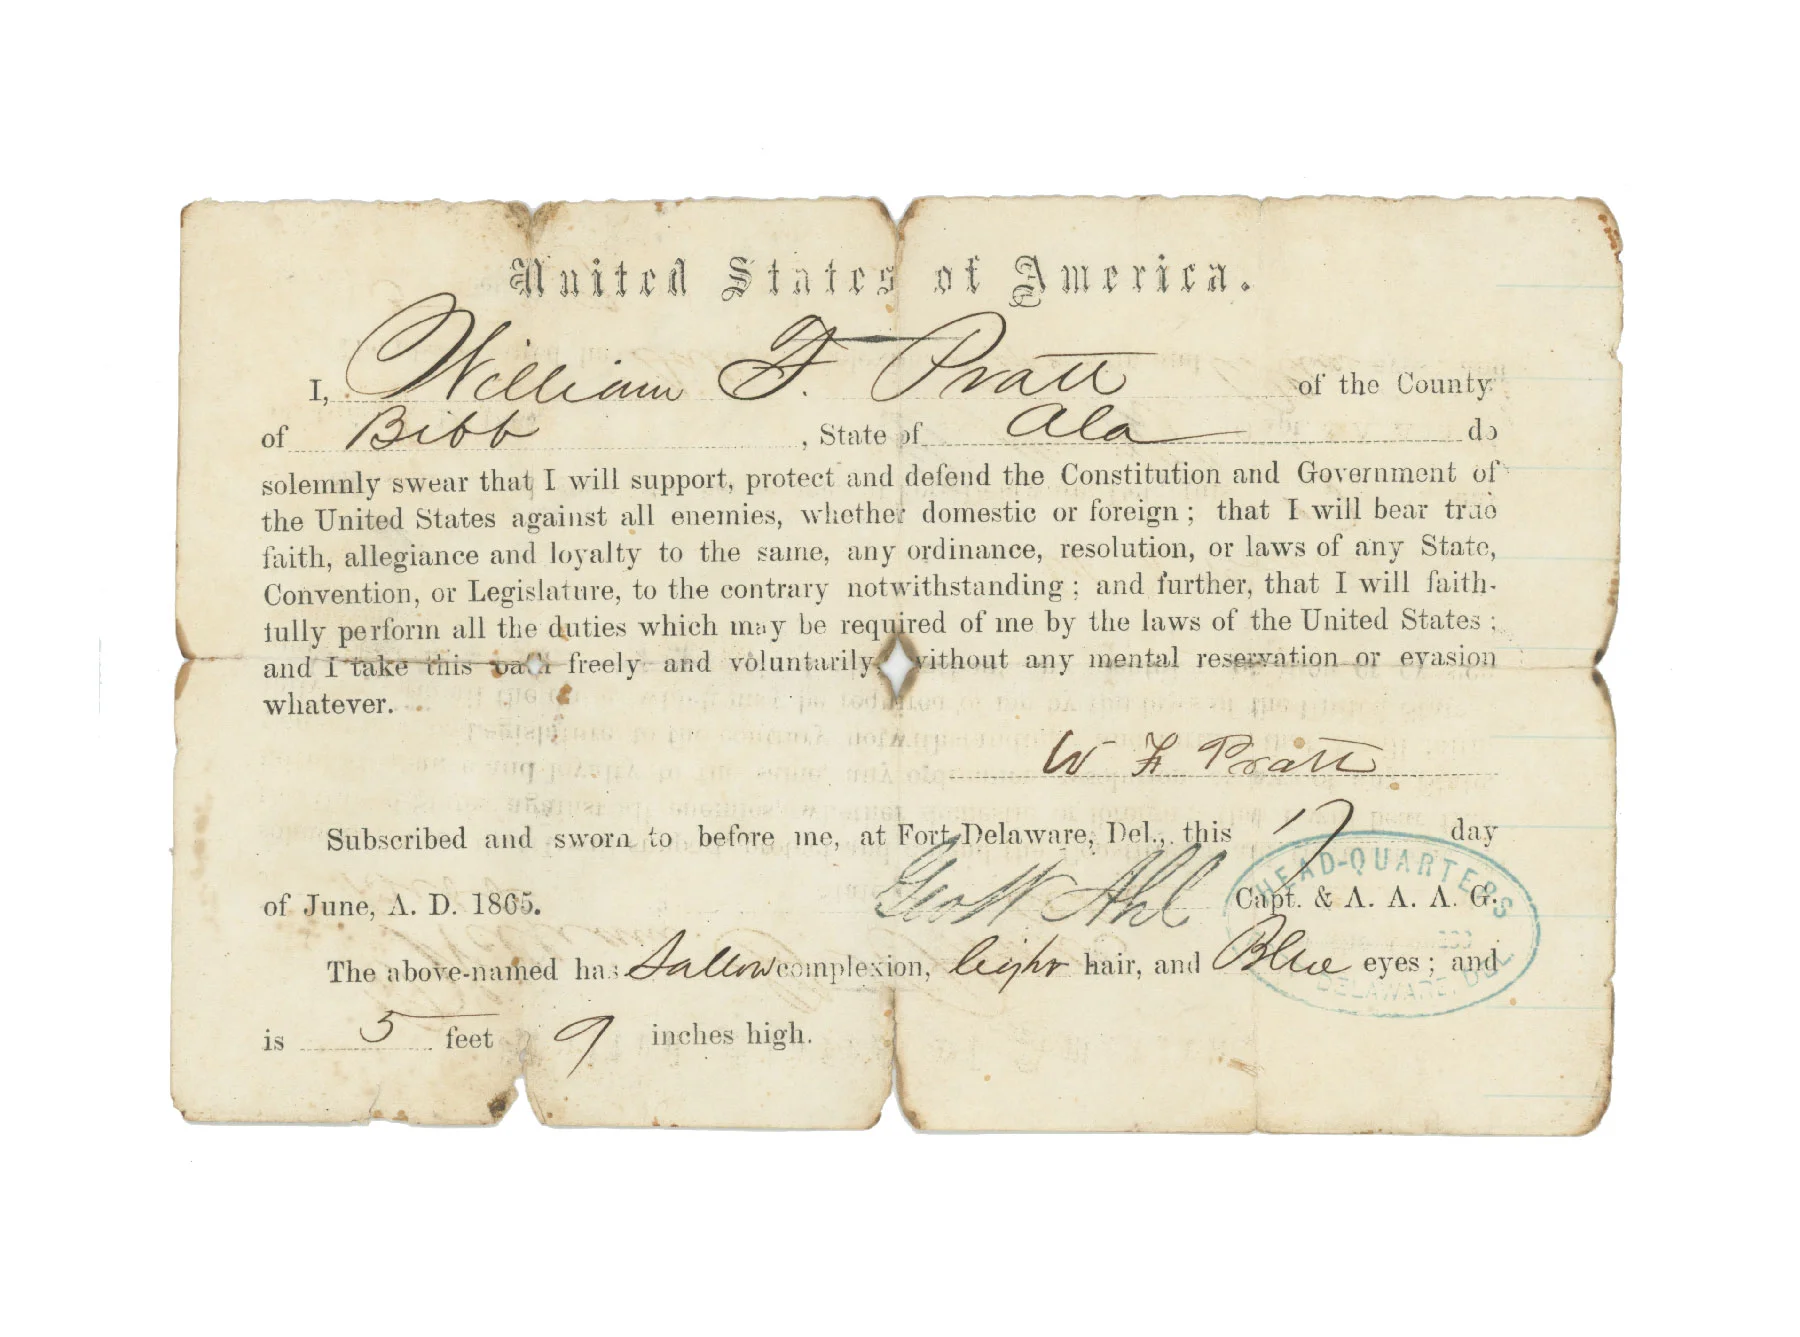 United States of America.
I, William F. Pratt of the County
of Bibb , State of Ala do
solemnly swear that I will support, protect and defend the Constitution and Government of
the United States against all enemies, whether domestic or foreign ; that I will bear true
faith, allegiance and loyalty to the same, any ordinance, resolution, or laws of any State,
Convention, or Legislature, to the contrary notwithstanding ; and further, that I will faith-
fully perform all the duties which may be required of me by the laws of the United States ;
and I take this oath freely and voluntarily, without any mental reservation or evasion
whatever.
W F Pratt
Subscribed and sworn to before me, at Fort Delaware, Del., this 17 day
of June, A. D. 1865. Geo W Ahl Capt. & A. A. A. G.
HEAD-QUARTERS
DELAWARE, DEL.
The above-named has Sallow complexion, light hair, and Blue eyes ; and
is 5 feet 9 inches high.